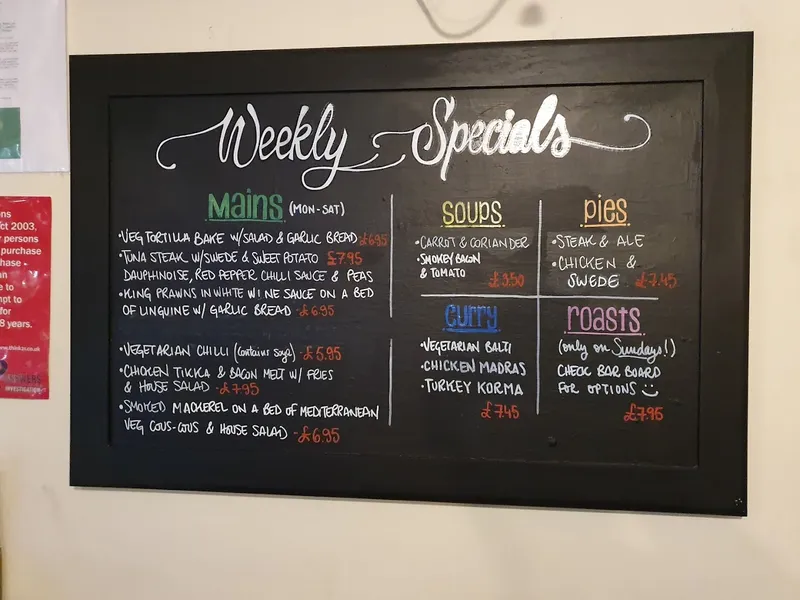 Weekly Specials
Mains (MON-SAT)
•VEG TORTILLA BAKE W/SALAD & GARLIC BREAD £6.95
•TUNA STEAK W/SWEDE & SWEET POTATO £7.95
DAUPHINOISE, RED PEPPER CHILLI SAUCE & PEAS
•KING PRAWNS IN WHITE WINE SAUCE ON A BED
OF LINGUINE W/ GARLIC BREAD -£6.95
•VEGETARIAN CHILLI (contains soya) -£5.95
•CHICKEN TIKKA & BACON MELT W/ FRIES
& HOUSE SALAD -£7.95
•SMOKED MACKEREL ON A BED OF MEDITERRANEAN
VEG COUS-COUS & HOUSE SALAD -£6.95
SOUPS
•CARROT & CORIANDER
•SMOKEY BACON
& TOMATO £3.50
PIES
•STEAK & ALE
•CHICKEN &
SWEDE £7.45
CURRY
•VEGETARIAN BALTI
•CHICKEN MADRAS
•TURKEY KORMA
£7.45
ROASTS
(only on Sundays!)
CHECK BAR BOARD
FOR OPTIONS
£7.95
ct 2003,
persons
purchase
hase -
n
e to
mpt to
for
8 years.
www.think21.co.uk